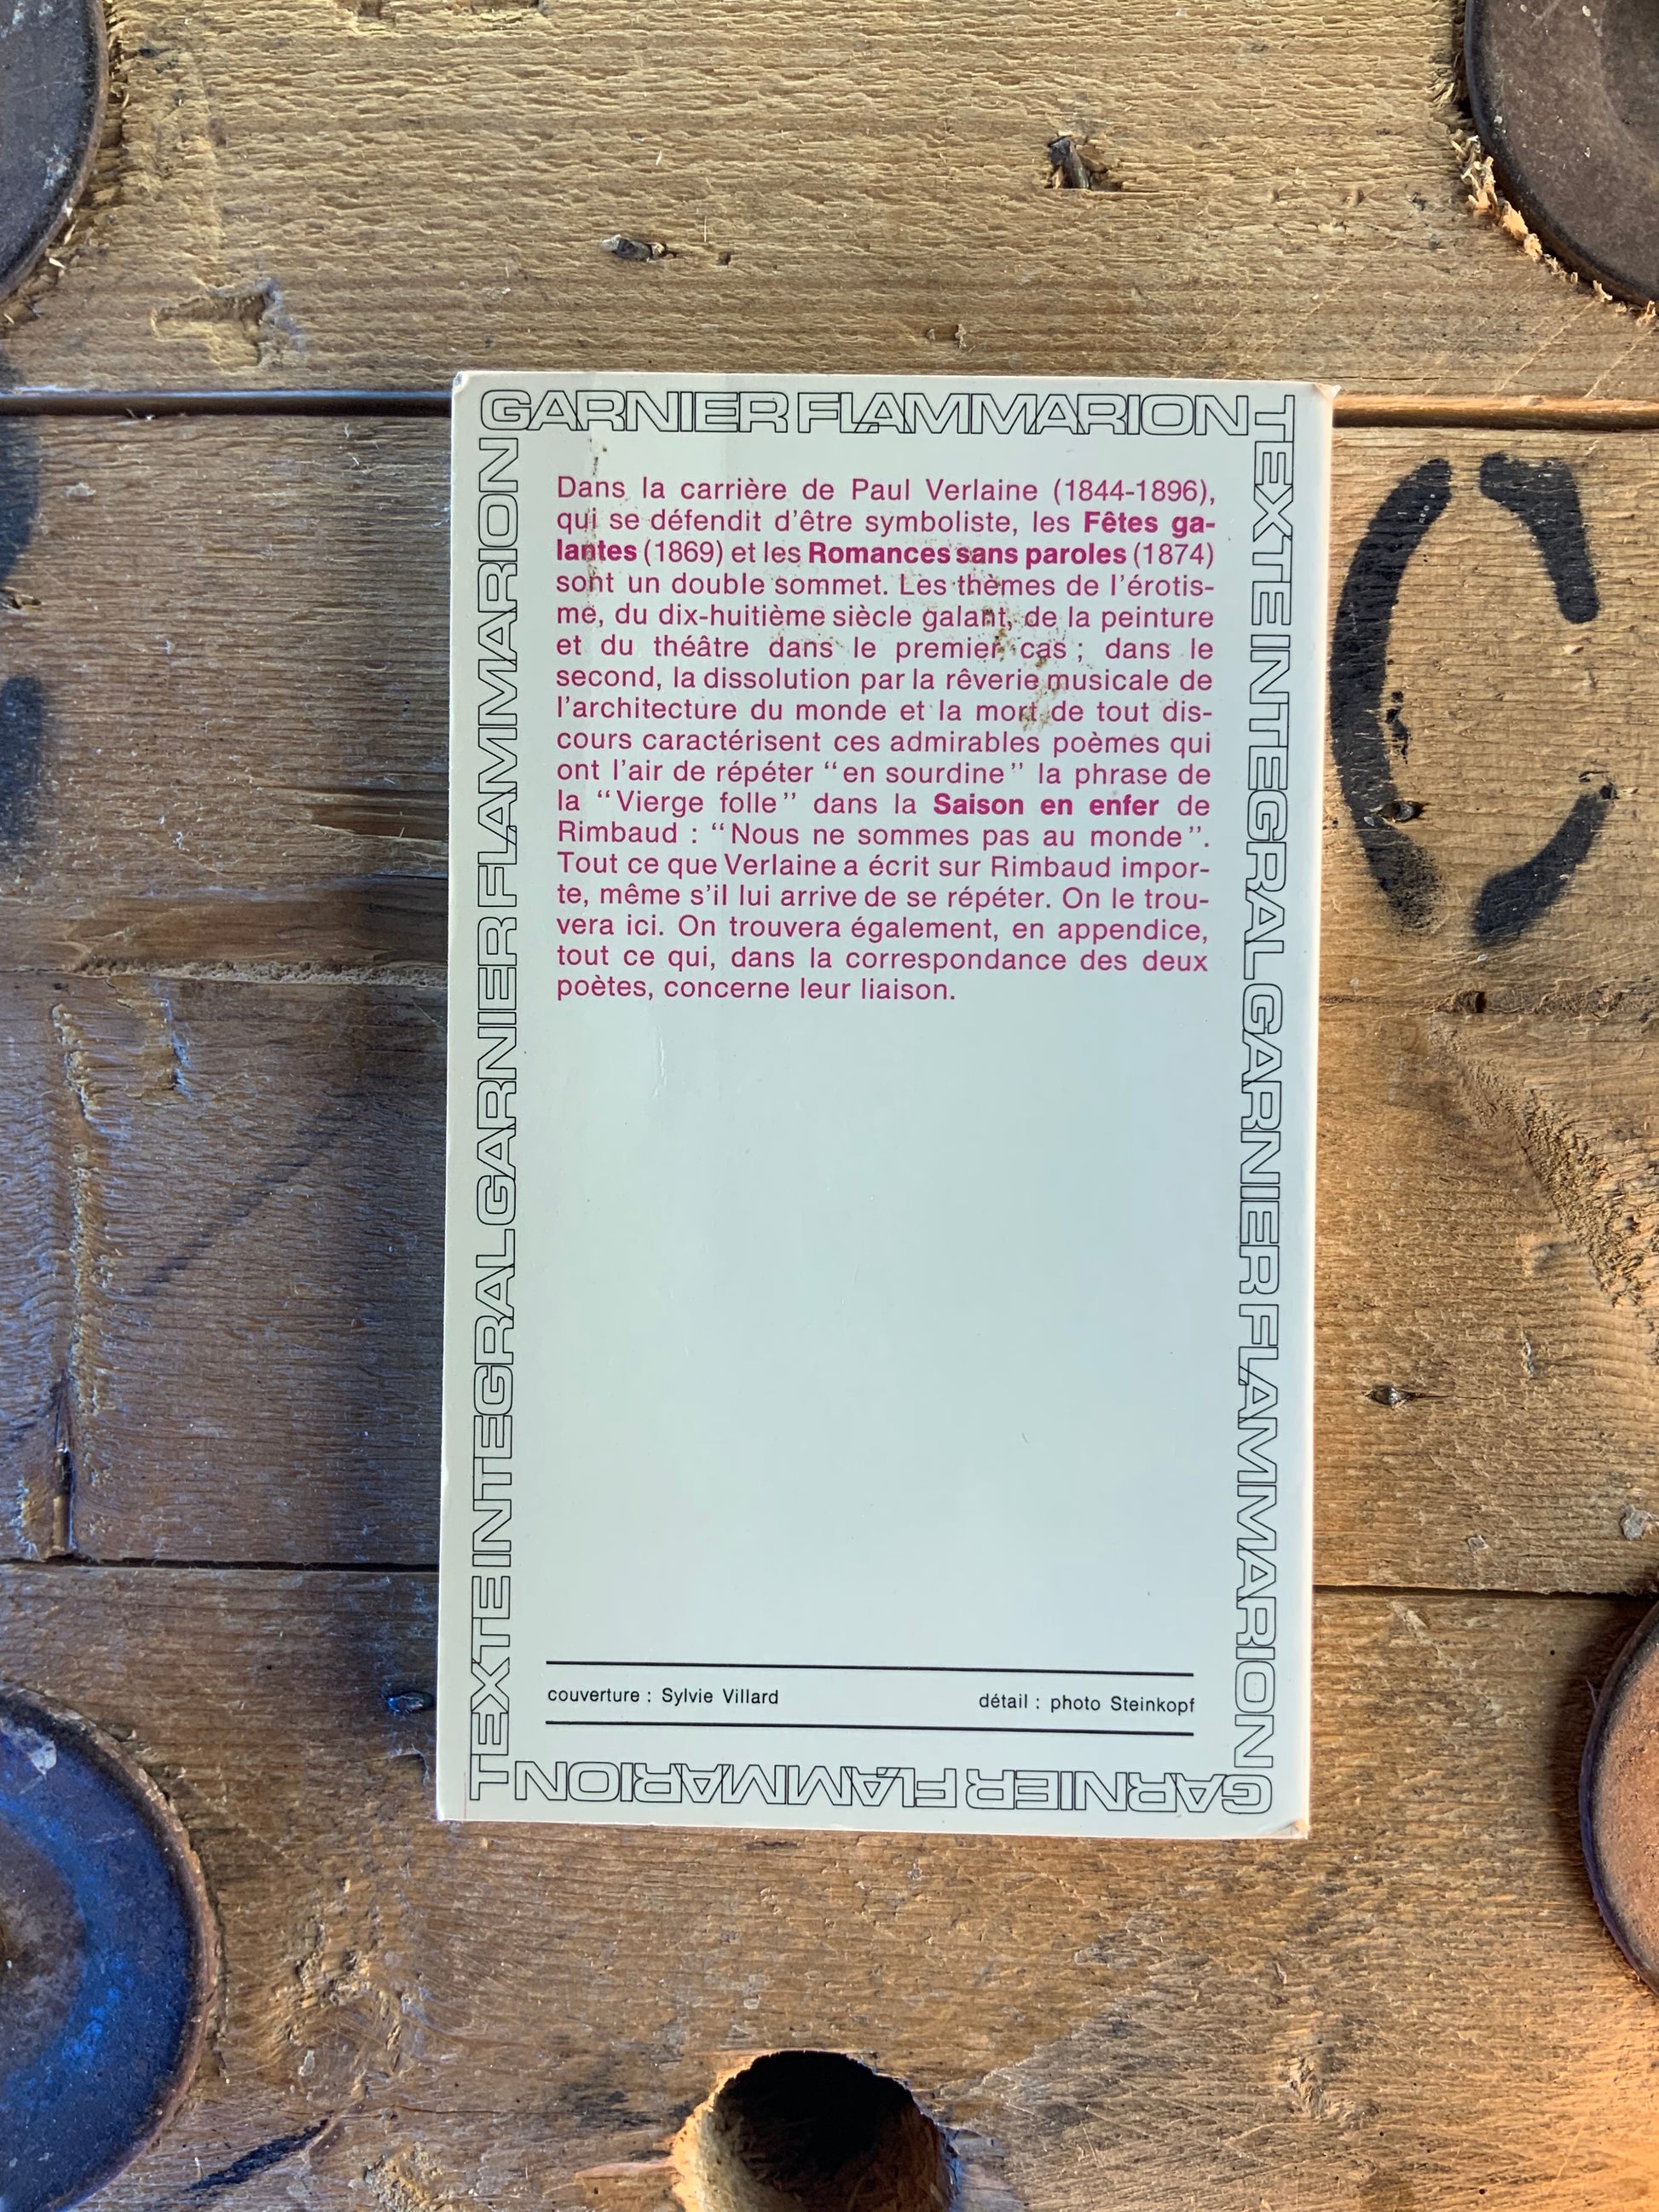 GARNIER FLAMMARION
TEXTE INTEGRAL GARNIER FLAMMARION
Dans la carrière de Paul Verlaine (1844-1896),
qui se défendit d'être symboliste, les Fêtes ga-
lantes (1869) et les Romances sans paroles (1874)
sont un double sommet. Les thèmes de l'érotis-
me, du dix-huitième siècle galant, de la peinture
et du théâtre dans le premier cas ; dans le
second, la dissolution par la rêverie musicale de
l'architecture du monde et la mort de tout dis-
cours caractérisent ces admirables poèmes qui
ont l'air de répéter “en sourdine” la phrase de
la “Vierge folle” dans la Saison en enfer de
Rimbaud : “Nous ne sommes pas au monde”.
Tout ce que Verlaine a écrit sur Rimbaud impor-
te, même s'il lui arrive de se répéter. On le trou-
vera ici. On trouvera également, en appendice,
tout ce qui, dans la correspondance des deux
poètes, concerne leur liaison.
couverture : Sylvie Villard
détail : photo Steinkopf
GARNIER FLAMMARION
TEXTE INTEGRAL GARNIER FLAMMARION